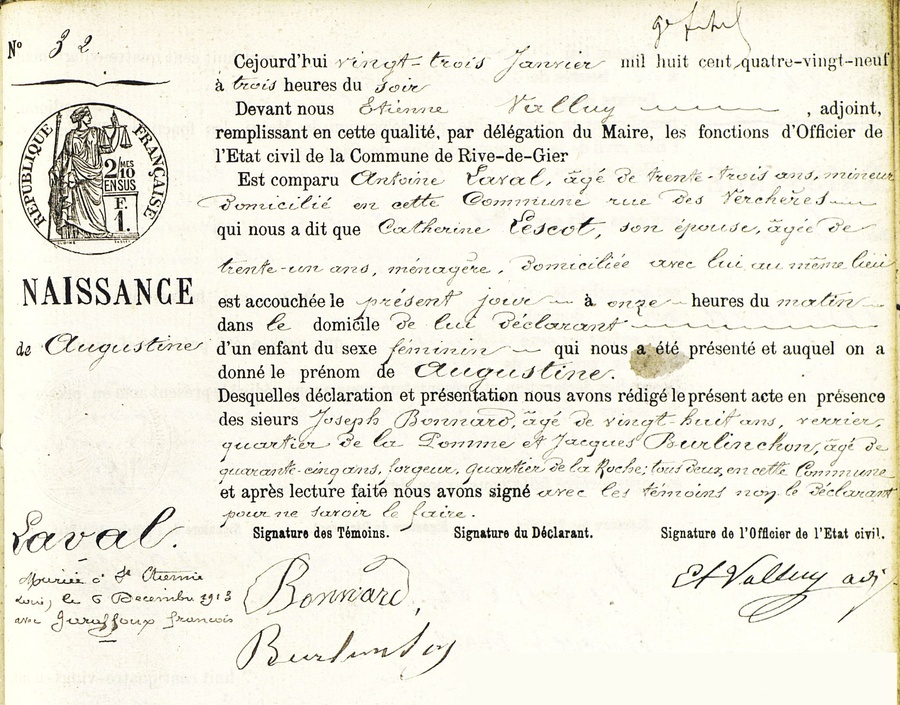 N° 32.
Cejourd'hui vingt-trois Janvier mil huit cent quatre-vingt-neuf
à trois heures du soir
Devant nous Etienne Valluy , adjoint,
remplissant en cette qualité, par délégation du Maire, les fonctions d'Officier de
l'Etat civil de la Commune de Rive-de-Gier
Est comparu Antoine Laval, âgé de trente-trois ans, mineur
domicilié en cette Commune rue des Verchères
qui nous a dit que Catherine Lescot, son épouse, âgée de
trente-un ans, ménagère, domiciliée avec lui au même lieu
est accouchée le présent jour à onze heures du matin
dans le domicile de lui déclarant
d'un enfant du sexe féminin qui nous a été présenté et auquel on a
donné le prénom de Augustine.
Desquelles déclaration et présentation nous avons rédigé le présent acte en présence
des sieurs Joseph Bonnard, âgé de vingt-huit ans, verrier,
quartier de la Pomme et Jacques Burlinchon, âgé de
quarante-cinq ans, forgeur, quartier de la Roche; tous deux, en cette Commune
et après lecture faite nous avons signé avec les témoins non le déclarant
pour ne savoir le faire.
Signature des Témoins. Signature du Déclarant. Signature de l'Officier de l'Etat civil.
Bonnard
Et Valluy adj
RÉPUBLIQUE FRANÇAISE
2 MES
10
EN SUS
F.
1.
NAISSANCE
de Augustine
Laval.
Mariée à St Etienne
Loire, le 6 Décembre 1913
avec François